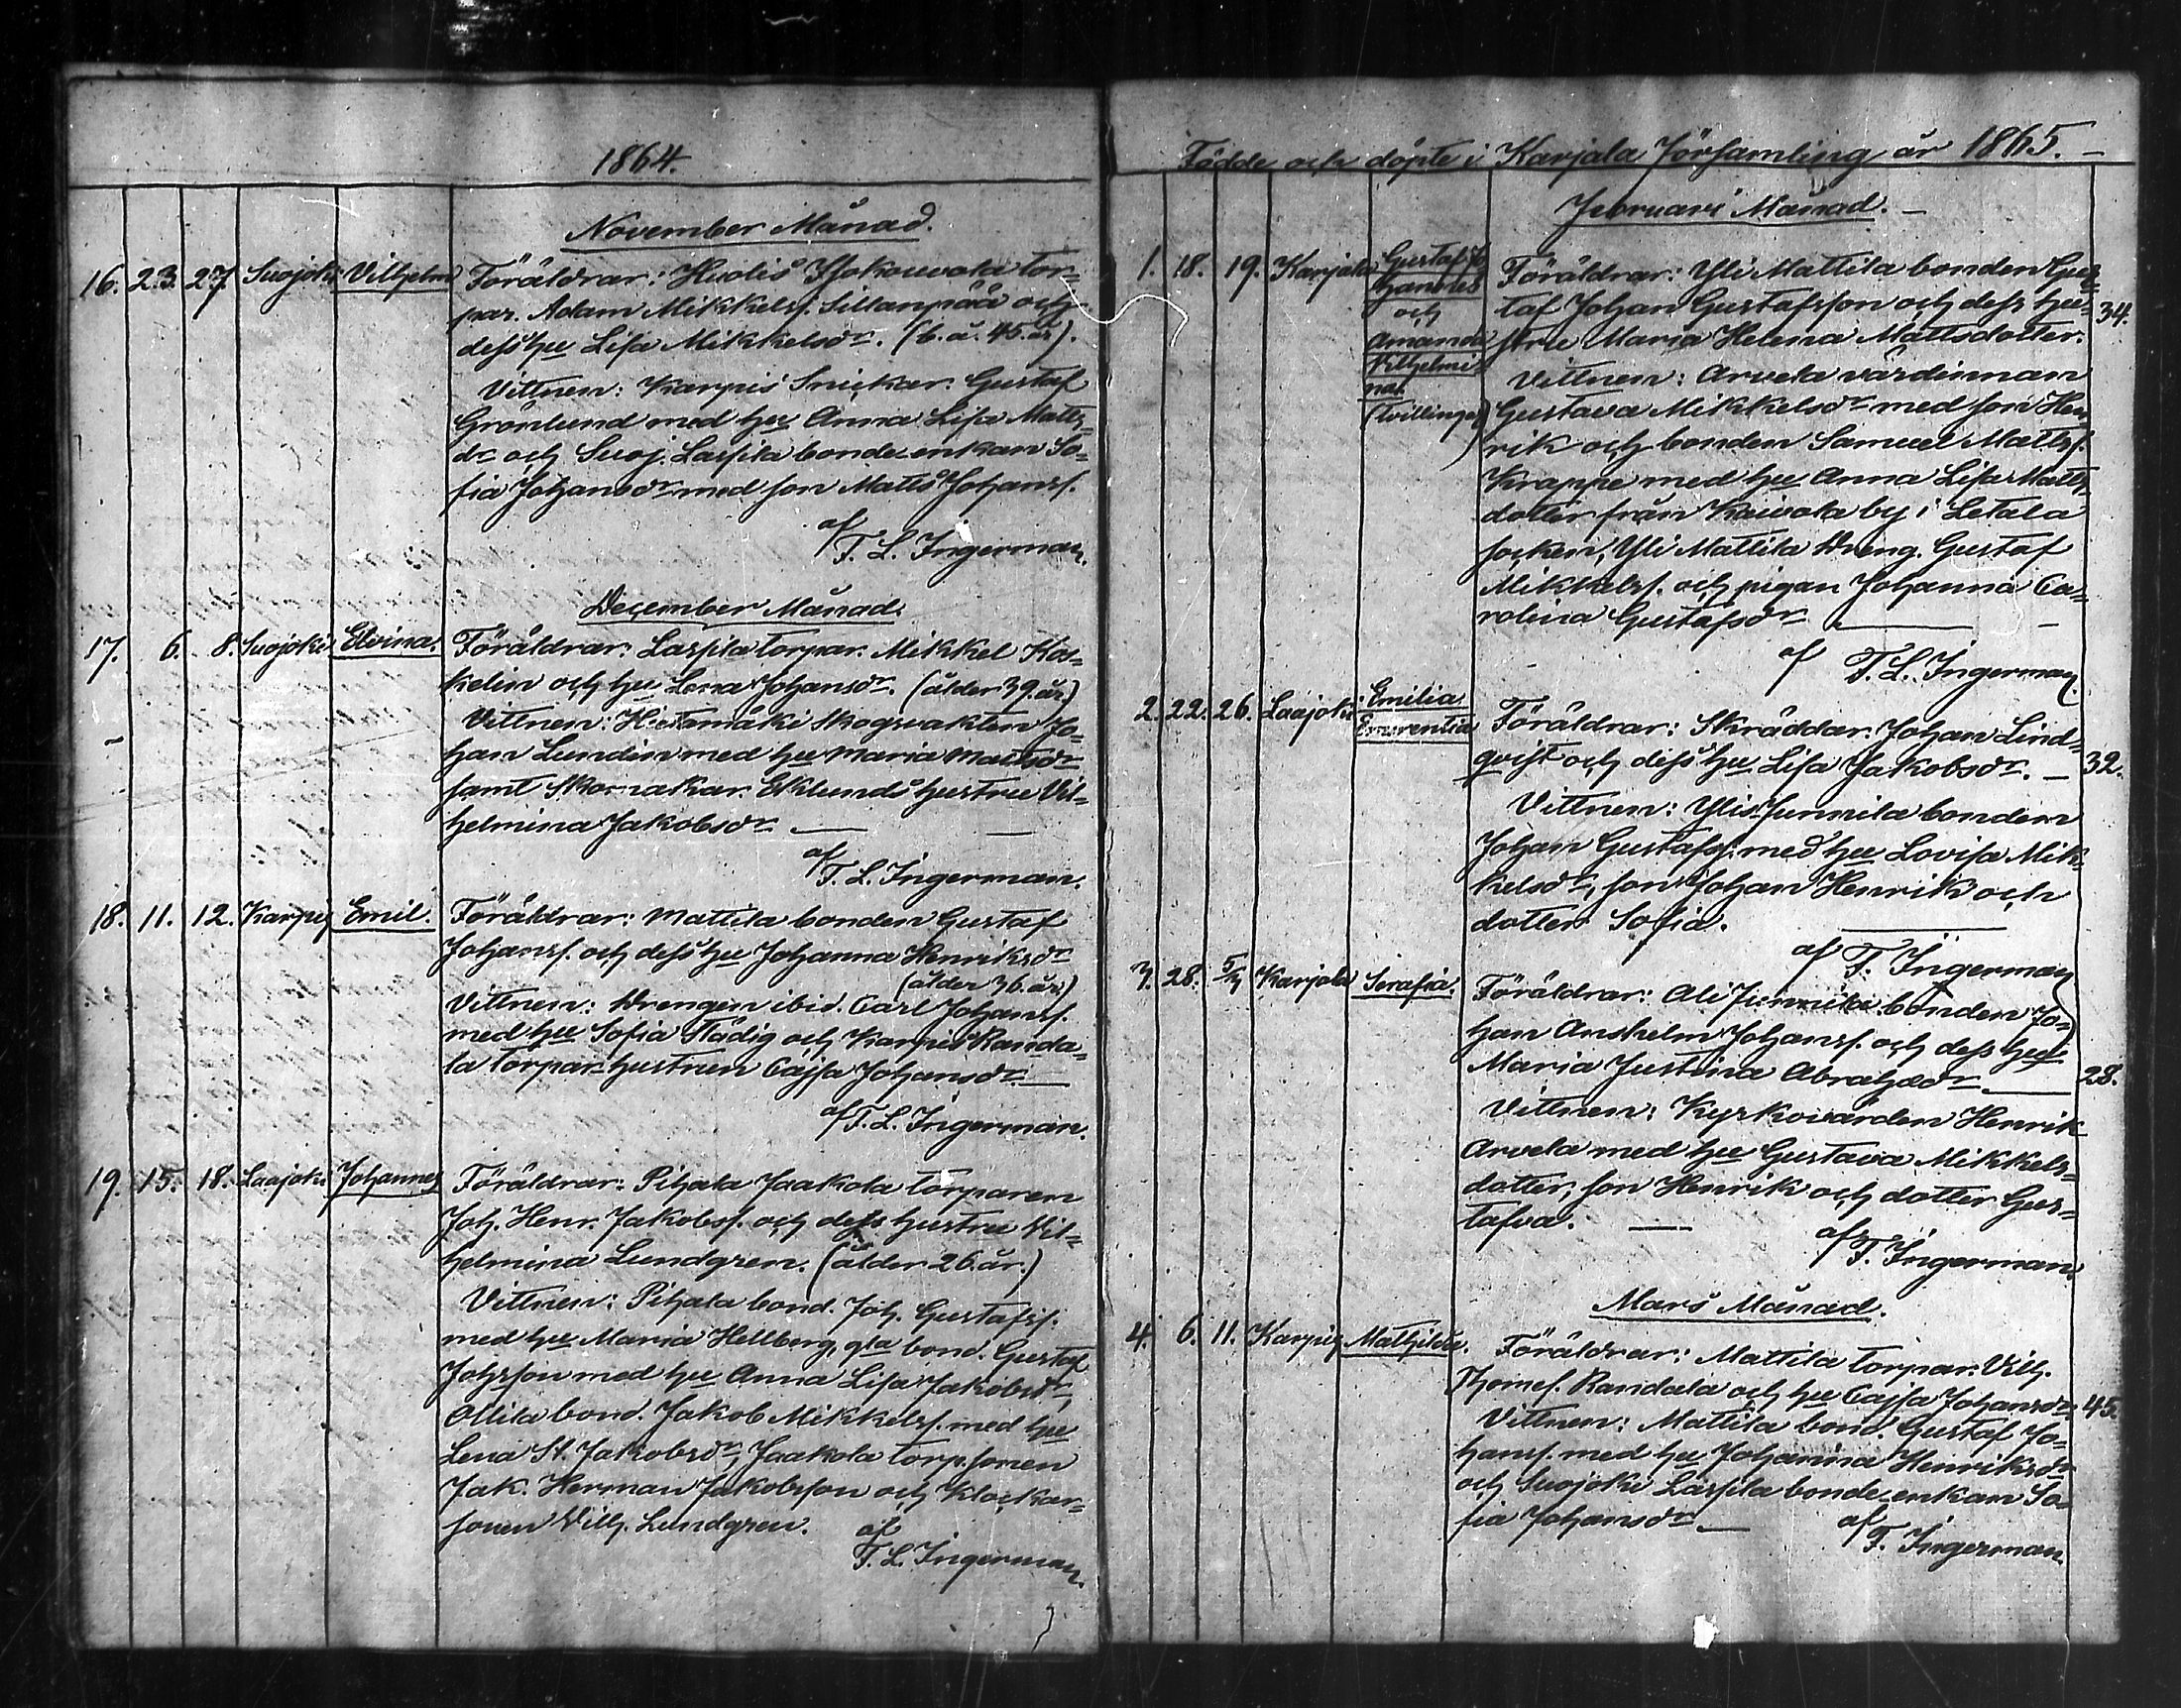 1864.
November Månad.
16. 23. 27. Suojoki Vilhelm Föräldrar: Huolis Isokouvola tor=
par. Adam Mikkelss. Sillanpää och
dess hu Lisa Mikkelsdr. (b. ä. 45. år).
Vittnen: Karpis Snickar. Gustaf
Grönlund med hu Anna Lisa Matts=
dr och Suoj. Lassila bonde enkan So=
fia Johansdr med son Matts Johanss.
af
T. L. Ingerman.
December Månad.
17. 6. 8. Suojoki Elvina. Föräldrar: Lassila torpar. Mikkel Kos=
kelin och hu Lena Johansdr. (ålder 39. år)
Vittnen: Hietamäki Skogvakten Jo=
han Lundin med hu Maria Mattsdr
samt Skomakar. Eklunds hustru Vil=
helmina Jakobsdr —
af
T. L. Ingerman.
18. 11. 12. Karpis Emil. Föräldrar: Mattila bonden Gustaf
Johanss. och dess hu Johanna Henriksdr
(ålder 36. år)
Vittnen: Drengen ibid. Carl Johanss.
med hu Sofia Städig och Karpis Randa=
la torpar hustrun Cajsa Johansdr —
af T. L. Ingerman.
19. 15. 18. Laajoki Johannes Föräldrar: Pihala Jaakola torparen
Joh. Henr. Jakobss. och dess hustru Vil=
helmina Lundgren. (ålder 26. år.)
Vittnen: Pihala bond. Joh. Gustafss.
med hu Maria Hellberg, gla bond. Gustaf
Johsson med hu Anna Lisa Jakobsdr,
Ollila bond. Jakob Mikkelss. med hu
Lena St. Jakobsdr, Jaakola torp. sonen
Jak. Herman Jakobsson och Klockar=
sonen Vilh. Lundgren.
af
T. L. Ingerman.
Födde och döpte i Karjala Församling år 1865. —
Februari Månad. —
1. 18. 19. Karjala Gustaf Jo
hannes
och
Amanda
Vilhelmi
na
(Tvillingar)
Föräldrar: Yli Mattila bonden Gus=
taf Johan Gustafsson och dess hu= 34.
stru Maria Helena Mattsdotter.
Vittnen: Arvela värdinnan
Gustava Mikkelsdr med son Hen
rik och bonden Samuel Mattss.
Krappe med hu Anna Lisa Matts=
dotter från Kaivola by i Letala
socken, Yli Mattila Dreng. Gustaf
Mikkelss. och pigan Johanna Ca=
rolina Gustafsdr —
af T. L. Ingerman.
2. 22. 26. Laajoki Emilia
Emerentia
Föräldrar: Skräddar. Johan Lind=
qvist och dess hu Lisa Jakobsdr. — 32.
Vittnen: Ylis Junnila bonden
Johan Gustafss. med hu Lovisa Mik=
kelsdr, son Johan Henrik och
dotter Sofia.
af T. Ingerman
3. 28. 5/3 Karjala Serafia. Föräldrar: Ali Junnila bonden Jo=
han Anshelm Johanss. och dess hu
Maria Justina Abrahdr — 28.
Vittnen: Kyrkovärden Henrik
Arvela med hu Gustava Mikkels=
dotter, son Henrik och dotter Gus=
tafva. —
af T. Ingerman.
Mars Månad.
4. 6. 11. Karpis Mathilda. Föräldrar: Mattila torpar. Vilh.
Thomes. Randala och hu Cajsa Johansdr 45.
Vittnen: Mattila bond. Gustaf Jo=
hanss. med hu Johanna Henriksdr
och Suojoki Lassila bonde enkan So=
fia Johansdr —
af
T. Ingerman